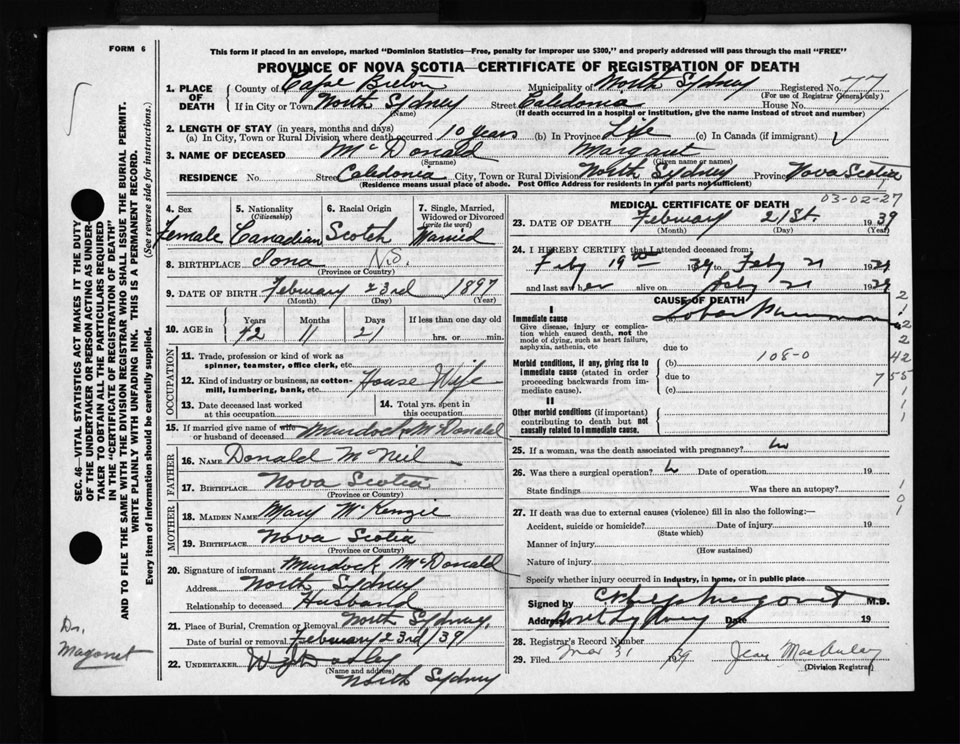 FORM 6
This form if placed in an envelope, marked "Dominion Statistics—Free, penalty for improper use $300," and properly addressed will pass through the mail "FREE"
PROVINCE OF NOVA SCOTIA—CERTIFICATE OF REGISTRATION OF DEATH
1. PLACE OF DEATH
County of Cape Breton Municipality of North Sydney Registered No. 77
(For use of Registrar General only)
If in City or Town North Sydney Street Caledonia House No.
(Name) (If death occurred in a hospital or institution, give the name instead of street and number)
2. LENGTH OF STAY (in years, months and days)
(a) In City, Town or Rural Division where death occurred 10 years (b) In Province Life (c) In Canada (if immigrant)
3. NAME OF DECEASED McDonald Margaret
(Surname) (Given name or names)
RESIDENCE No. Street Caledonia City, Town or Rural Division North Sydney Province Nova Scotia
(Residence means usual place of abode. Post Office Address for residents in rural parts not sufficient)
4. Sex 5. Nationality (Citizenship) 6. Racial Origin 7. Single, Married, Widowed or Divorced (write the word)
Female Canadian Scotch Married
8. BIRTHPLACE Iona N.S.
(Province or Country)
9. DATE OF BIRTH February 23rd 1897
(Month) (Day) (Year)
10. AGE in Years Months Days If less than one day old
42 11 21 hrs. or min.
OCCUPATION
11. Trade, profession or kind of work as spinner, teamster, office clerk, etc.
12. Kind of industry or business, as cotton-mill, lumbering, bank, etc. House Wife
13. Date deceased last worked at this occupation
14. Total yrs. spent in this occupation
15. If married give name of wife or husband of deceased Murdock McDonald
FATHER
16. NAME Donald McNeil
17. BIRTHPLACE Nova Scotia
(Province or Country)
MOTHER
18. MAIDEN NAME Mary McKenzie
19. BIRTHPLACE Nova Scotia
(Province or Country)
20. Signature of informant Murdock McDonald
Address North Sydney
Relationship to deceased Husband
21. Place of Burial, Cremation or Removal North Sydney
Date of burial or removal February 23rd/39
22. UNDERTAKER
(Name and address)
North Sydney
03-02-27
MEDICAL CERTIFICATE OF DEATH
23. DATE OF DEATH February 21st. 1939
(Month) (Day) (Year)
24. I HEREBY CERTIFY that I attended deceased from:
Feby 19th 1939 to Feby 21 1939
and last saw her alive on Feby 21 1939
CAUSE OF DEATH
I
Immediate cause
Give disease, injury or complication which caused death, not the mode of dying, such as heart failure, asphyxia, asthenia, etc
Lobar Pneumonia
due to
Morbid conditions, if any, giving rise to immediate cause (stated in order proceeding backwards from immediate cause).
(b) 108-0
due to
(c)
II
Other morbid conditions (if important) contributing to death but not causally related to immediate cause.
25. If a woman, was the death associated with pregnancy?
26. Was there a surgical operation? Date of operation 19
State findings Was there an autopsy?
27. If death was due to external causes (violence) fill in also the following:—
Accident, suicide or homicide? Date of injury 19
(State which)
Manner of injury
(How sustained)
Nature of injury
Specify whether injury occurred in industry, in home, or in public place
Signed by M.D.
Address North Sydney Date 19
28. Registrar's Record Number
29. Filed Mar 31 1939 Jean MacAulay
(Division Registrar)
SEC. 46—VITAL STATISTICS ACT MAKES IT THE DUTY
OF THE UNDERTAKER OR PERSON ACTING AS UNDER-
TAKER TO OBTAIN ALL THE PARTICULARS REQUIRED
IN THE "CERTIFICATE OF REGISTRATION OF DEATH"
AND TO FILE THE SAME WITH THE DIVISION REGISTRAR WHO SHALL ISSUE THE BURIAL PERMIT.
WRITE PLAINLY WITH UNFADING INK. THIS IS A PERMANENT RECORD.
Every item of information should be carefully supplied. (See reverse side for instructions.)
Dr.
Magonet